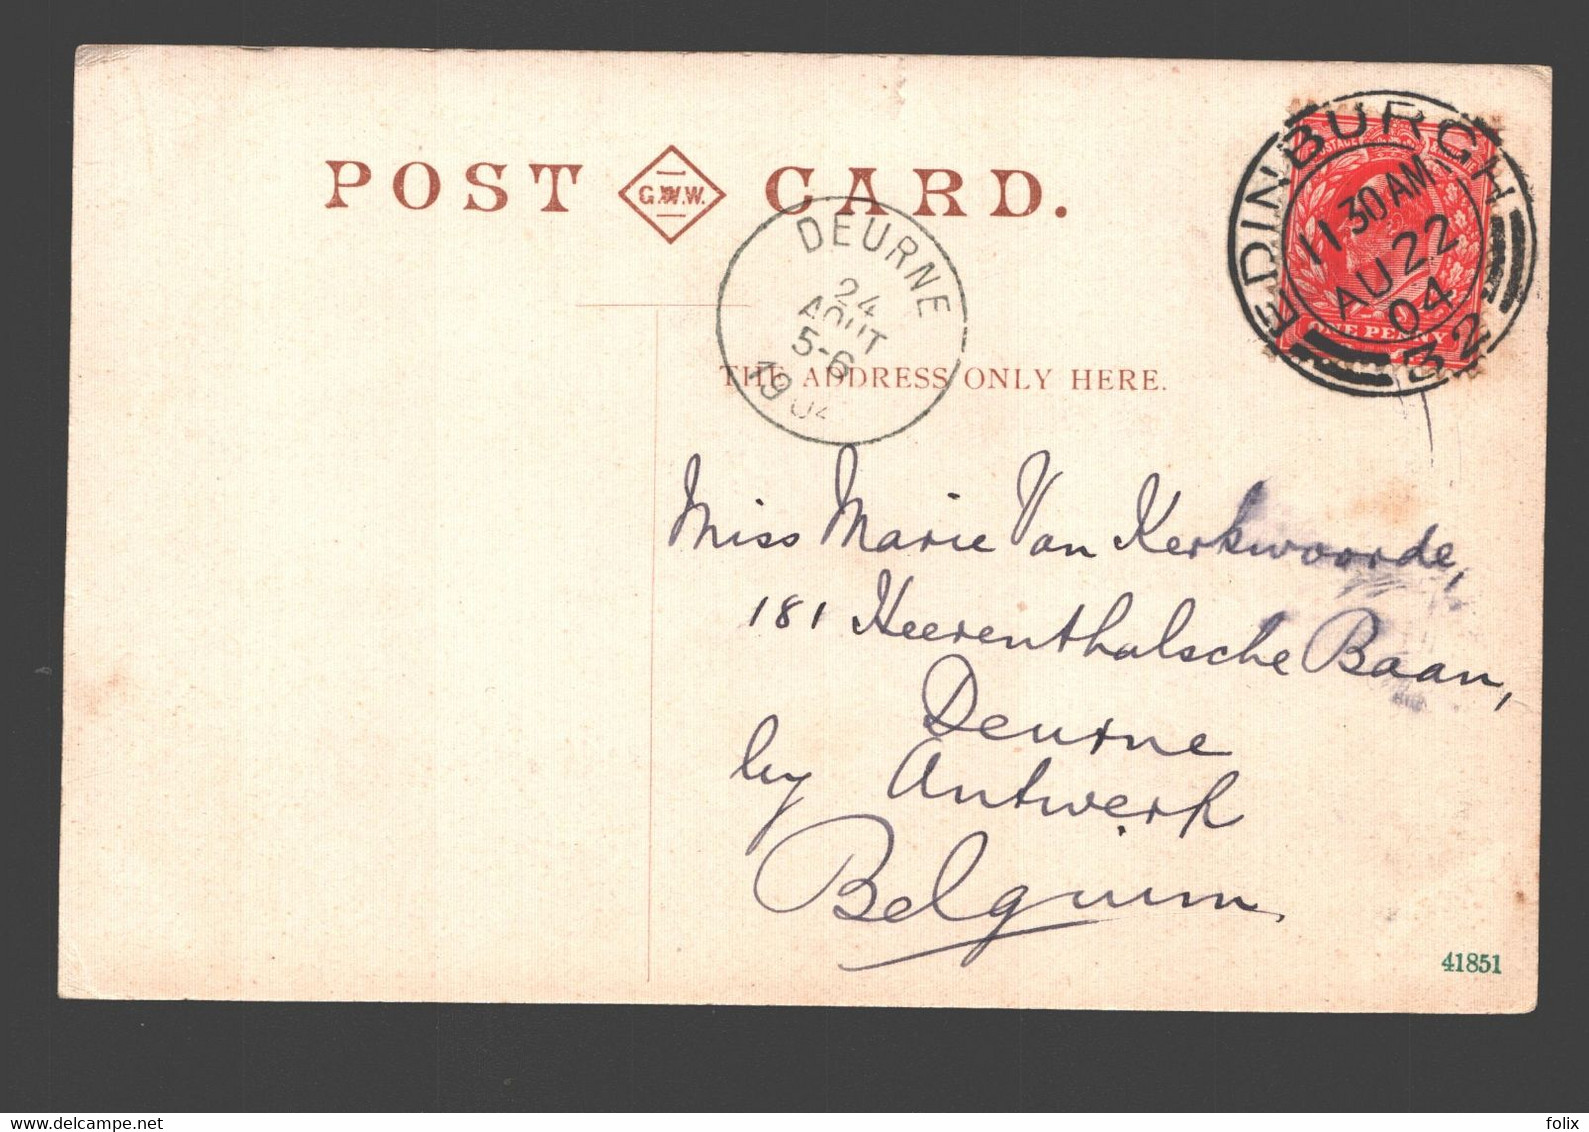 POST G.W.W. CARD.
EDINBURGH
11 30 AM
AU 22
04
32
ONE PENNY
DEURNE
24
AOUT
5-6
1904
THE ADDRESS ONLY HERE.
Miss Marie Van Kerkwoorde,
181 Heerenthalsche Baan,
Deurne
by Antwerk
Belgium
41851
folix
delcampe.net